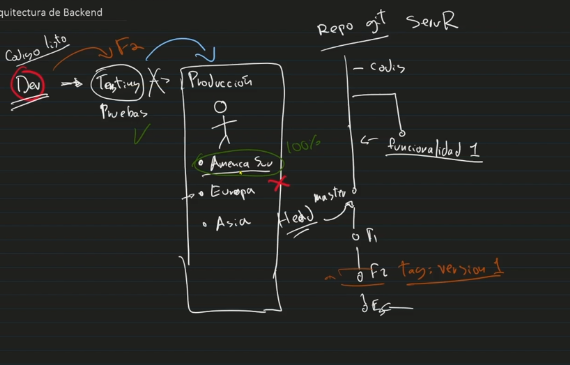 quitectura de Backend
Codigo listo
F2
Dev
Testing
Pruebas
Producción
America Sur
100%
Europa
Asia
Repo git
funcionalidad 1
master
Head
F1
F2
tag: version 1